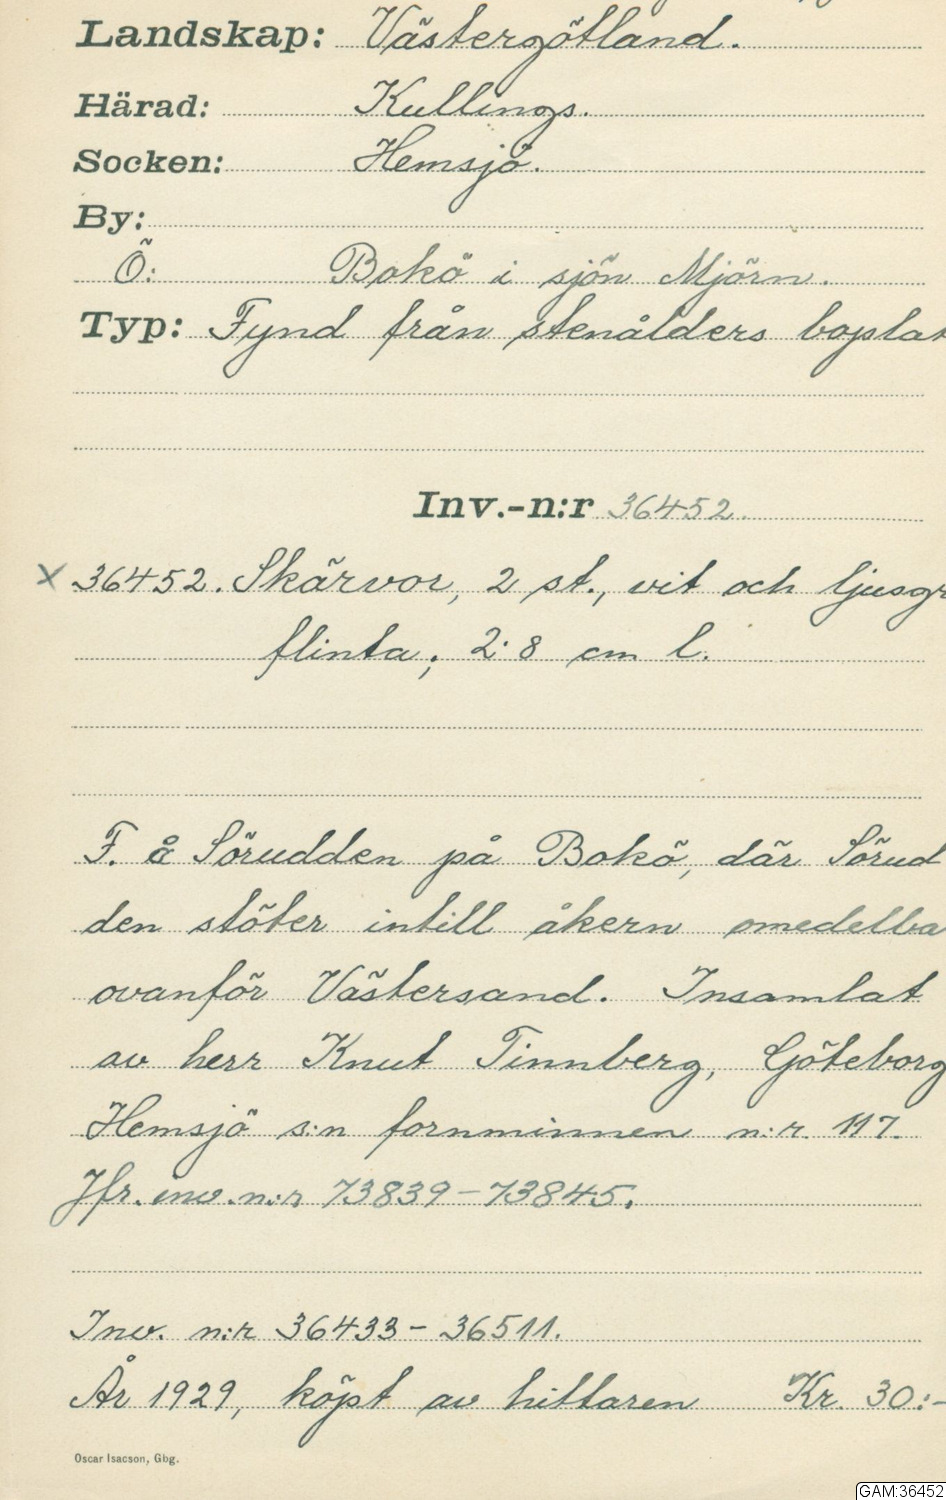 Landskap: Västergötland.
Härad: Kullings.
Socken: Hemsjö.
By:
Ö: Bokö i sjön Mjörn.
Typ: Fynd från stenålders boplat
Inv.-n:r 36452.
x 36452. Skärvor, 2 st., vit och ljusgr
flinta; 2:8 cm l.
F. å Sörudden på Bokö, där Sörud
den stöter intill åkern omedelba
ovanför Västersand. Insamlat
av herr Knut Tinnberg, Göteborg
Hemsjö s:n fornminnen n:r. 117.
Jfr. inv. n:r 73839-73845.
Inv. n:r 36433-36511.
År 1929, köpt av hittaren Kr. 30:-
Oscar Isacson, Gbg.
GAM:36452